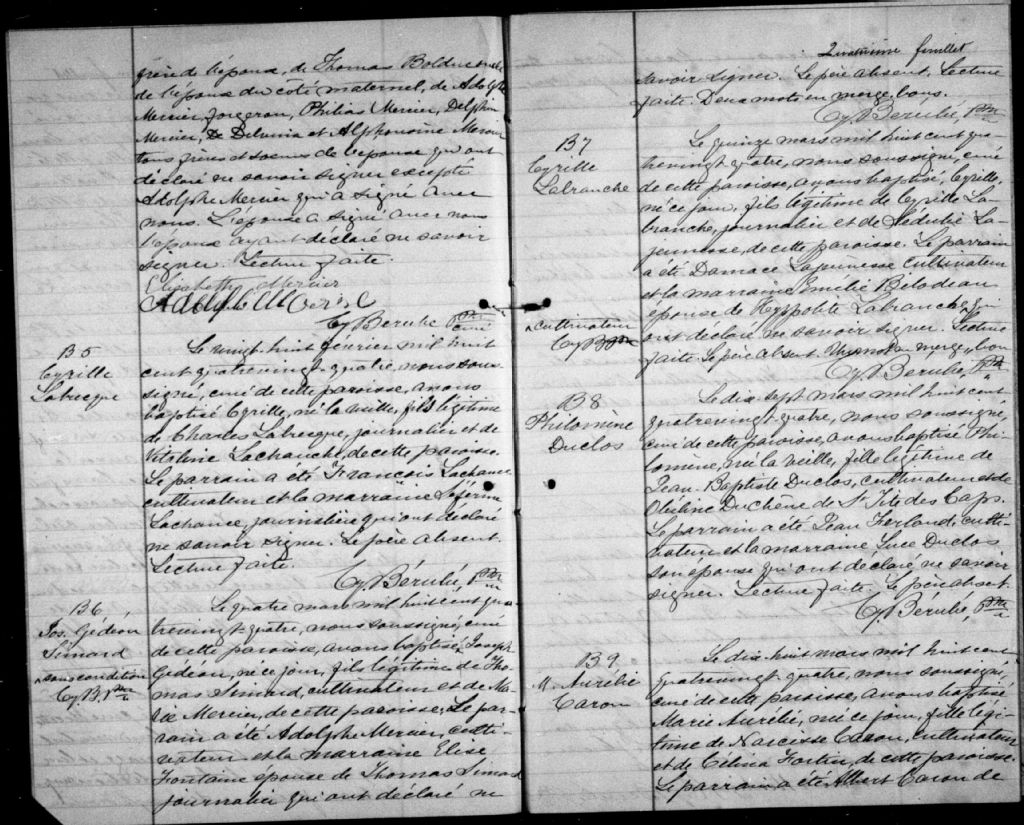 frère de l'époux, de Thomas Bolduc
de l'épouse du coté maternel, de Adolphe
Mercier forgeron, Philias Mercier, Delphin
Mercier, Delvina et Alphonsine Mercier
tous frères et soeurs de l'épouse qui ont
déclaré ne savoir signer excepté
Adolphe Mercier qui a signé avec
nous. L'épouse a signé avec nous
l'époux ayant déclaré ne savoir
signer. Lecture faite.
Elisabeth Mercier
Adolphe Mercier
Cy Bérubé Ptre
curé
B5
Cyrille
Labresque
Le vingt-huit février mil huit
cent quatrevingt-quatre, nous sous-
signé, curé de cette paroisse, avons
baptisé Cyrille, né la veille, fils légitime
de Charles Labresque, journalier et de
Vitaline Lachance, de cette paroisse.
Le parrain a été François Lachance
cultivateur et la marraine
Lachance, journalière qui ont déclaré
ne savoir signer. Le père absent.
Lecture faite.
Cy. Bérubé, Ptre
B6
Jos. Gédéon
Simard
sous condition
Cy. B. Ptre
Le quatre mars mil huit cent qua-
trevingt-quatre, nous soussigné, curé
de cette paroisse, avons baptisé Joseph
Gédéon, né ce jour, fils légitime de Tho-
mas Simard, cultivateur et de Ma-
rie Mercier, de cette paroisse. Le par-
rain a été Adolphe Mercier, culti-
vateur et la marraine Elise
Fontaine épouse de Thomas Simard
journalier qui ont déclaré ne
feuillet
savoir signer. Le père absent. Lecture
faite. Deux mots en marge, bons.
Cy. Bérubé, Ptre
B7
Cyrille
Labranche
Le quinze mars mil huit cent qua-
trevingt quatre, nous soussigné, curé
de cette paroisse, avons baptisé, Cyrille,
né ce jour, fils légitime de Cyrille La-
branche, journalier et de Sédulie La-
jeunesse, de cette paroisse. Le parrain
a été Damace Lajeunesse cultivateur
et la marraine Emilie Bilodeau
épouse de Hyppolite Labranche, qui
ont déclaré ne savoir signer. Lecture
faite. Le père absent. Un mot en marge, bon
cultivateur
Cy B Ptre
Cy. Bérubé, Ptre
B8
Philomène
Duclos
Le dix-sept mars mil huit cent
quatrevingt quatre, nous soussigné,
curé de cette paroisse, avons baptisé Phi-
lomène, née la veille, fille légitime de
Jean-Baptiste Duclos, cultivateur et de
Obéline Duchène de St Tite des Caps.
Le parrain a été Jean Ferland, culti-
vateur et la marraine Luce Duclos
son épouse qui ont déclaré ne savoir
signer. Lecture faite. Le père absent.
Cy. Bérubé, Ptre
B9
M. Aurélie
Caron
Le dix-huit mars mil huit cent
quatrevingt quatre, nous soussigné,
curé de cette paroisse, avons baptisé
Marie Aurélie, née ce jour, fille légi-
time de Narcisse Caron, cultivateur
et de Célina Fortin, de cette paroisse.
Le parrain a été Albert Caron de